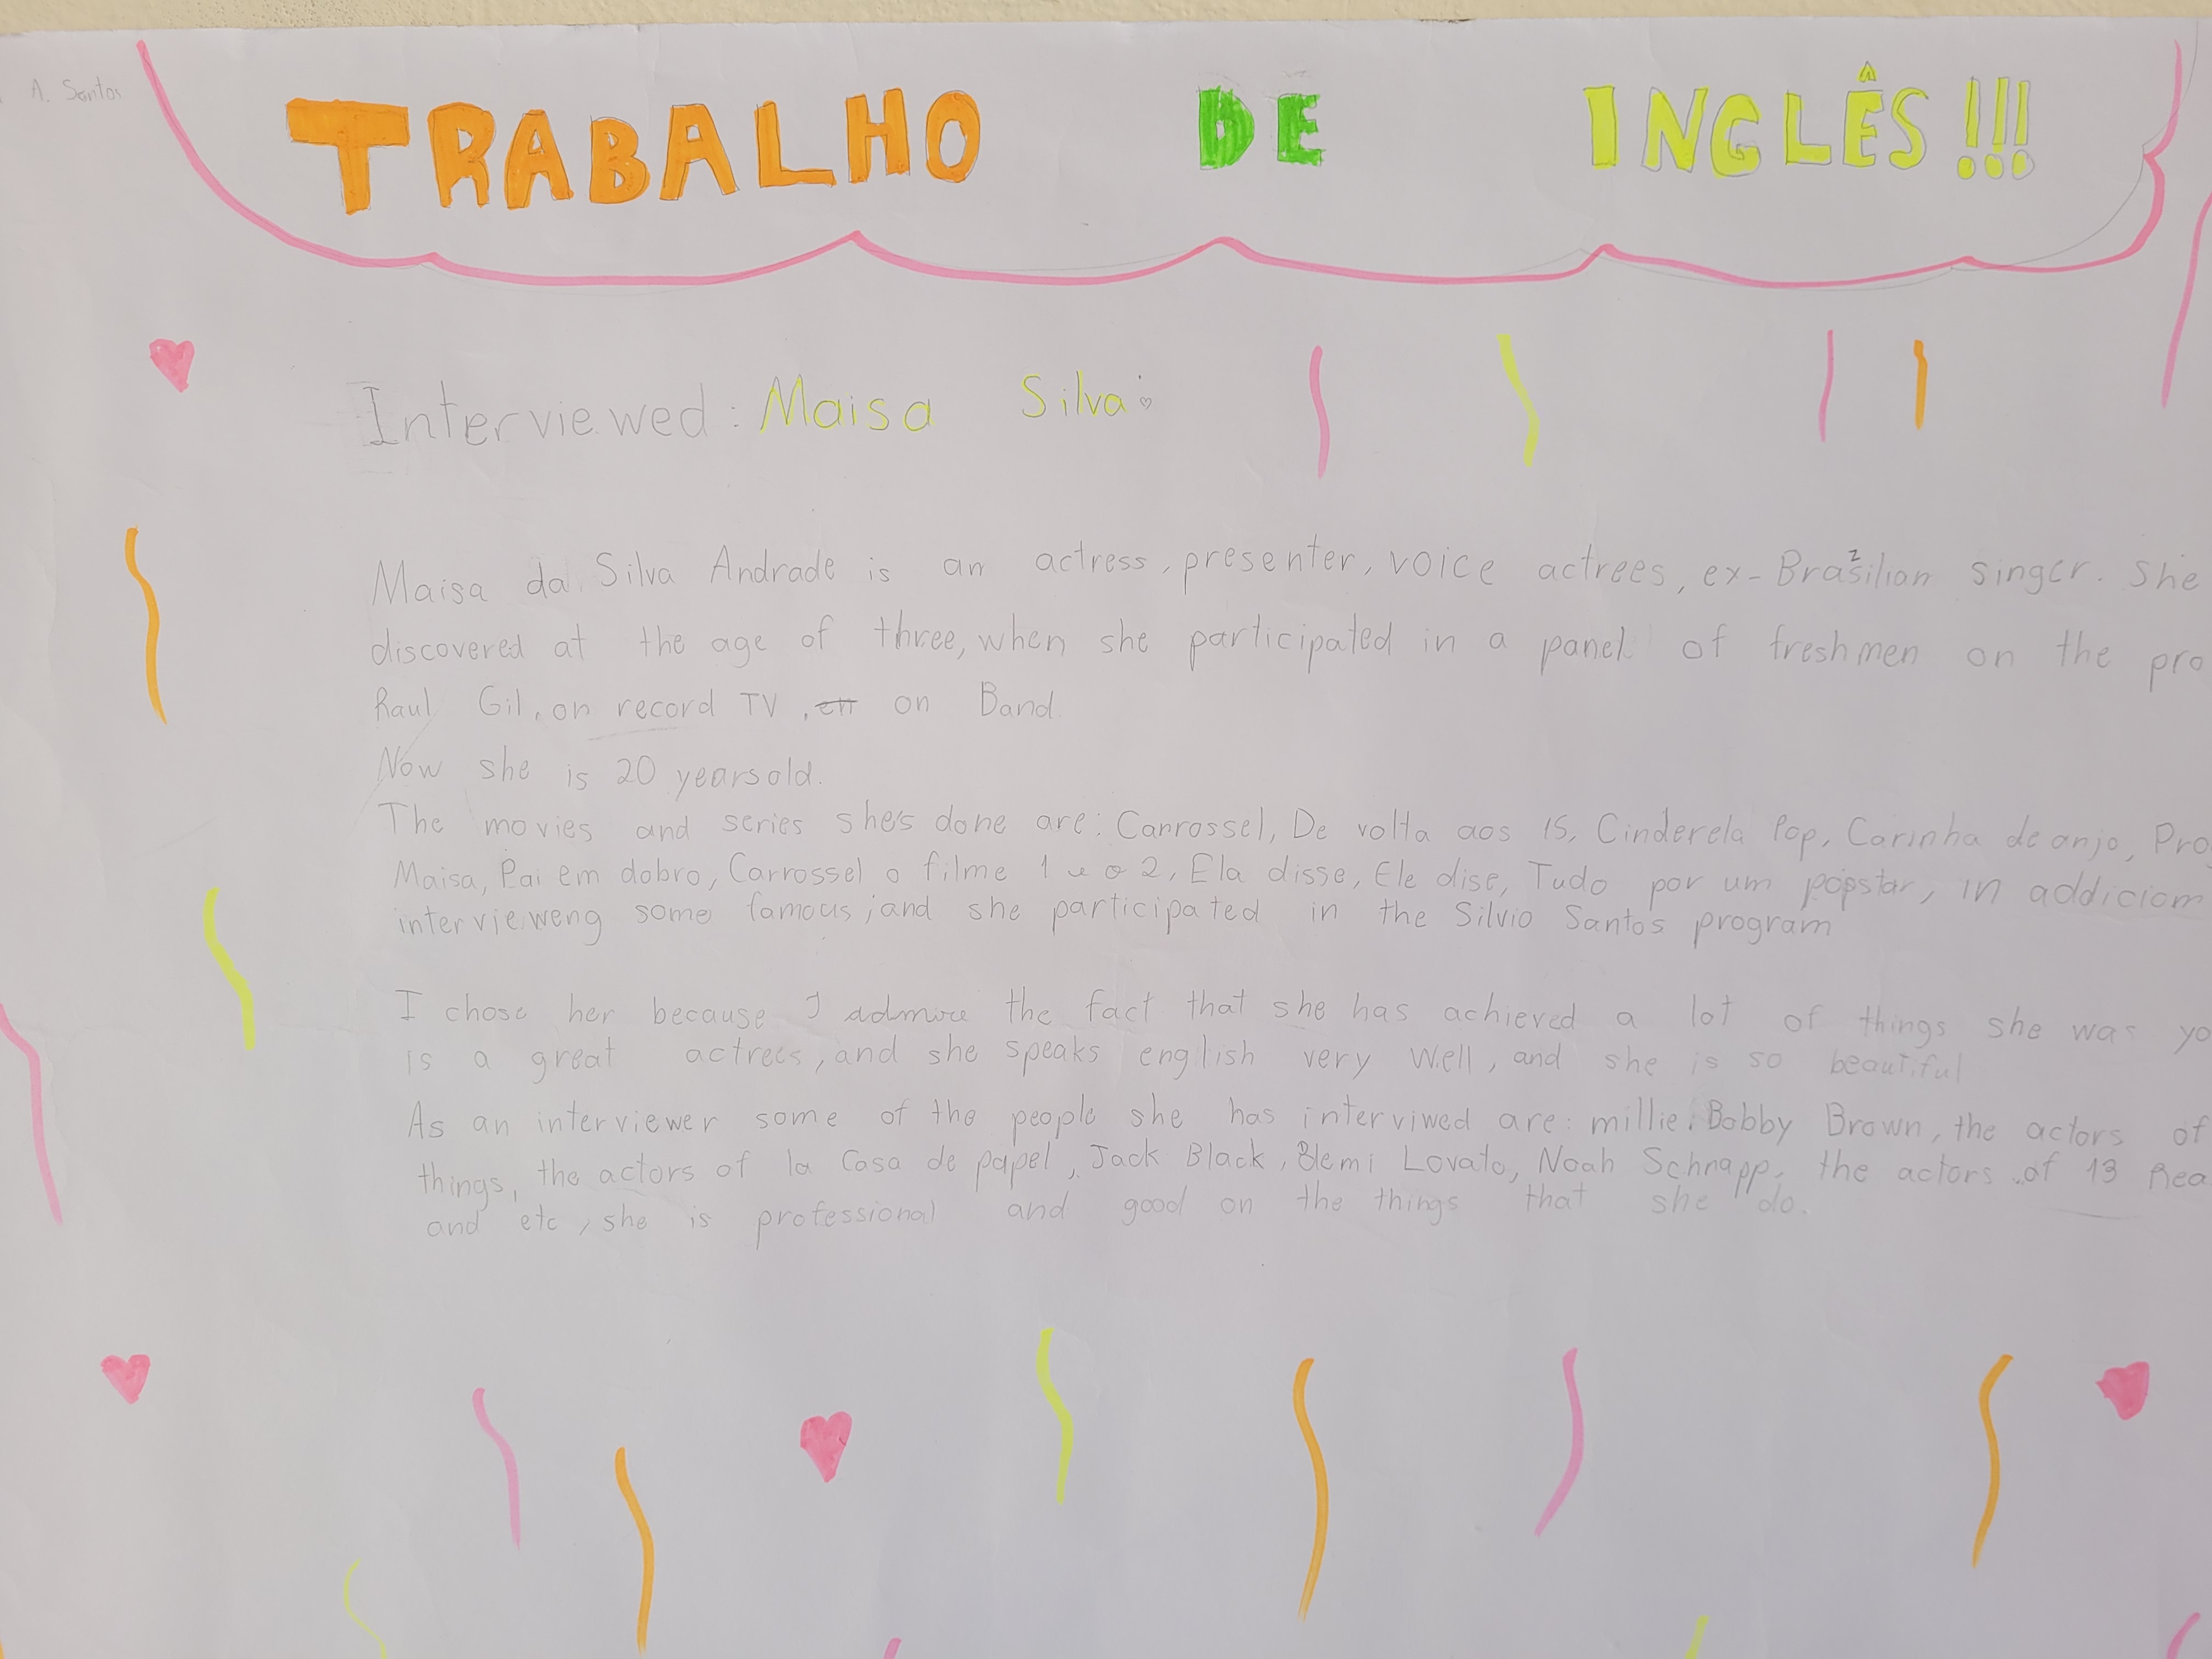 A. Santos
TRABALHO DE INGLÊS!!!
Interviewed: Maisa Silva
Maisa da Silva Andrade is an actress, presenter, voice actrees, ex-Brazilian singer. She
discovered at the age of three, when she participated in a panel of freshmen on the pro
Raul Gil, on record TV, on Band.
Now she is 20 yearsold.
The movies and series she's done are: Carrossel, De volta aos 15, Cinderela Pop, Carinha de anjo, Pro
Maisa, Pai em dobro, Carrossel o filme 1 e o 2, Ela disse, Ele dise, Tudo por um popstar, in addiciom
intervieweng some famous, and she participated in the Silvio Santo's program
I chose her because I admire the fact that she has achieved a lot of things she was yo
is a great actrees, and she speaks english very well, and she is so beautiful
As an interviewer some of the people she has interviwed are: millie Bobby Brown, the actors of
things, the actors of la Casa de papel, Jack Black, Demi Lovato, Noah Schnapp, the actors of 13 Rea
and etc, she is professional and good on the things that she do.